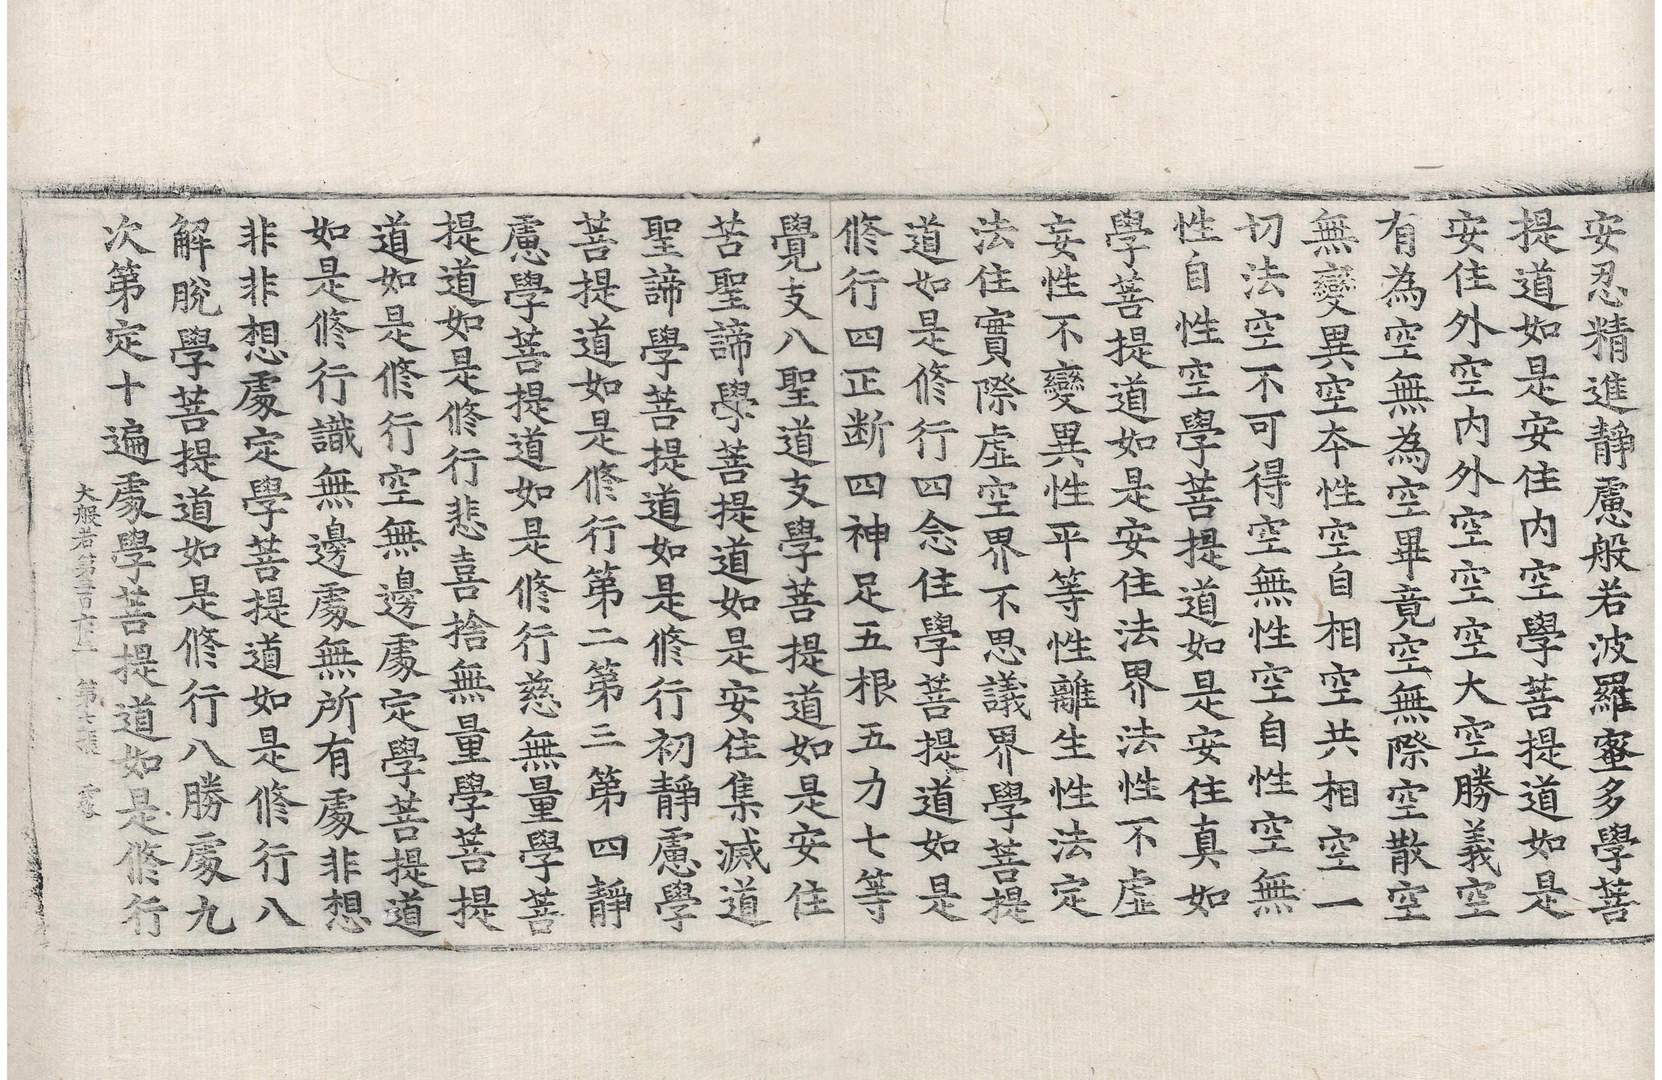 安忍精進靜慮般若波羅蜜多學菩
提道如是安住内空學菩提道如是
安住外空内外空空空大空勝義空
有為空無為空畢竟空無際空散空
無變異空夲性空自相空共相空一
切法空不可得空無性空自性空無
性自性空學菩提道如是安住真如
學菩提道如是安住法界法性不虛
妄性不變異性平等性離生性法定
法住實際虛空界不思議界學菩提
道如是修行四念住學菩提道如是
修行四正断四神足五根五力七等
覺支八聖道支學菩提道如是安住
苦聖諦學菩提道如是安住集滅道
聖諦學菩提道如是修行初靜慮學
菩提道如是修行第二第三第四靜
慮學菩提道如是修行慈無量學菩
提道如是修行悲喜捨無量學菩提
道如是修行空無邊處定學菩提道
如是修行識無邊處無所有處非想
非非想處定學菩提道如是修行八
解脫學菩提道如是修行八勝處九
次第定十遍處學菩提道如是修行
大般若第三百 第 張